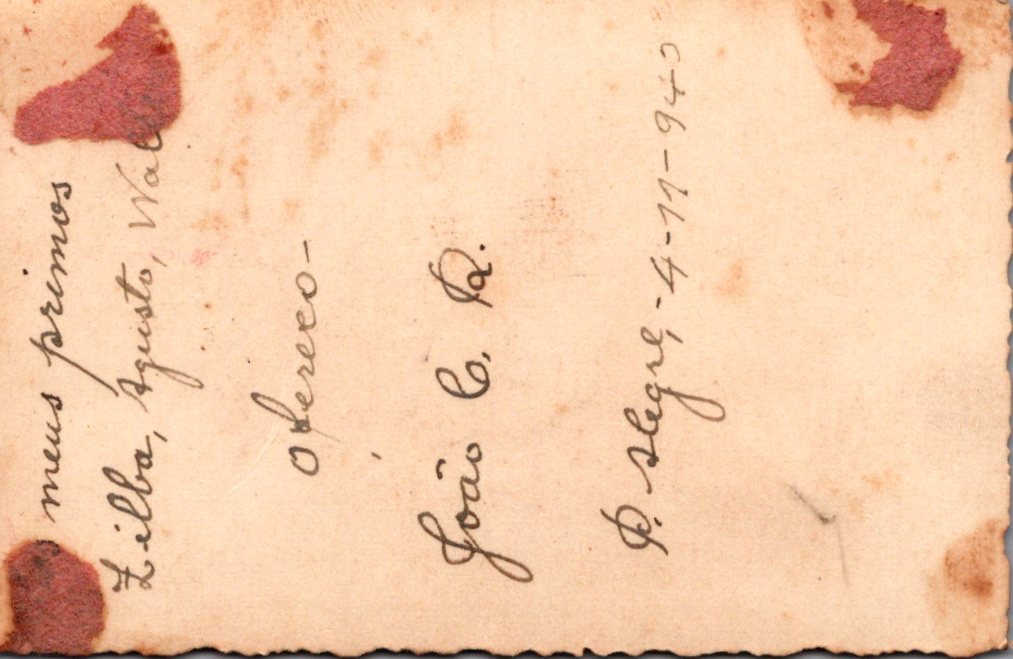 meus primos
Zilba, Agusto,
ofereço-
João C. R.
P. Alegre, -4-11-940